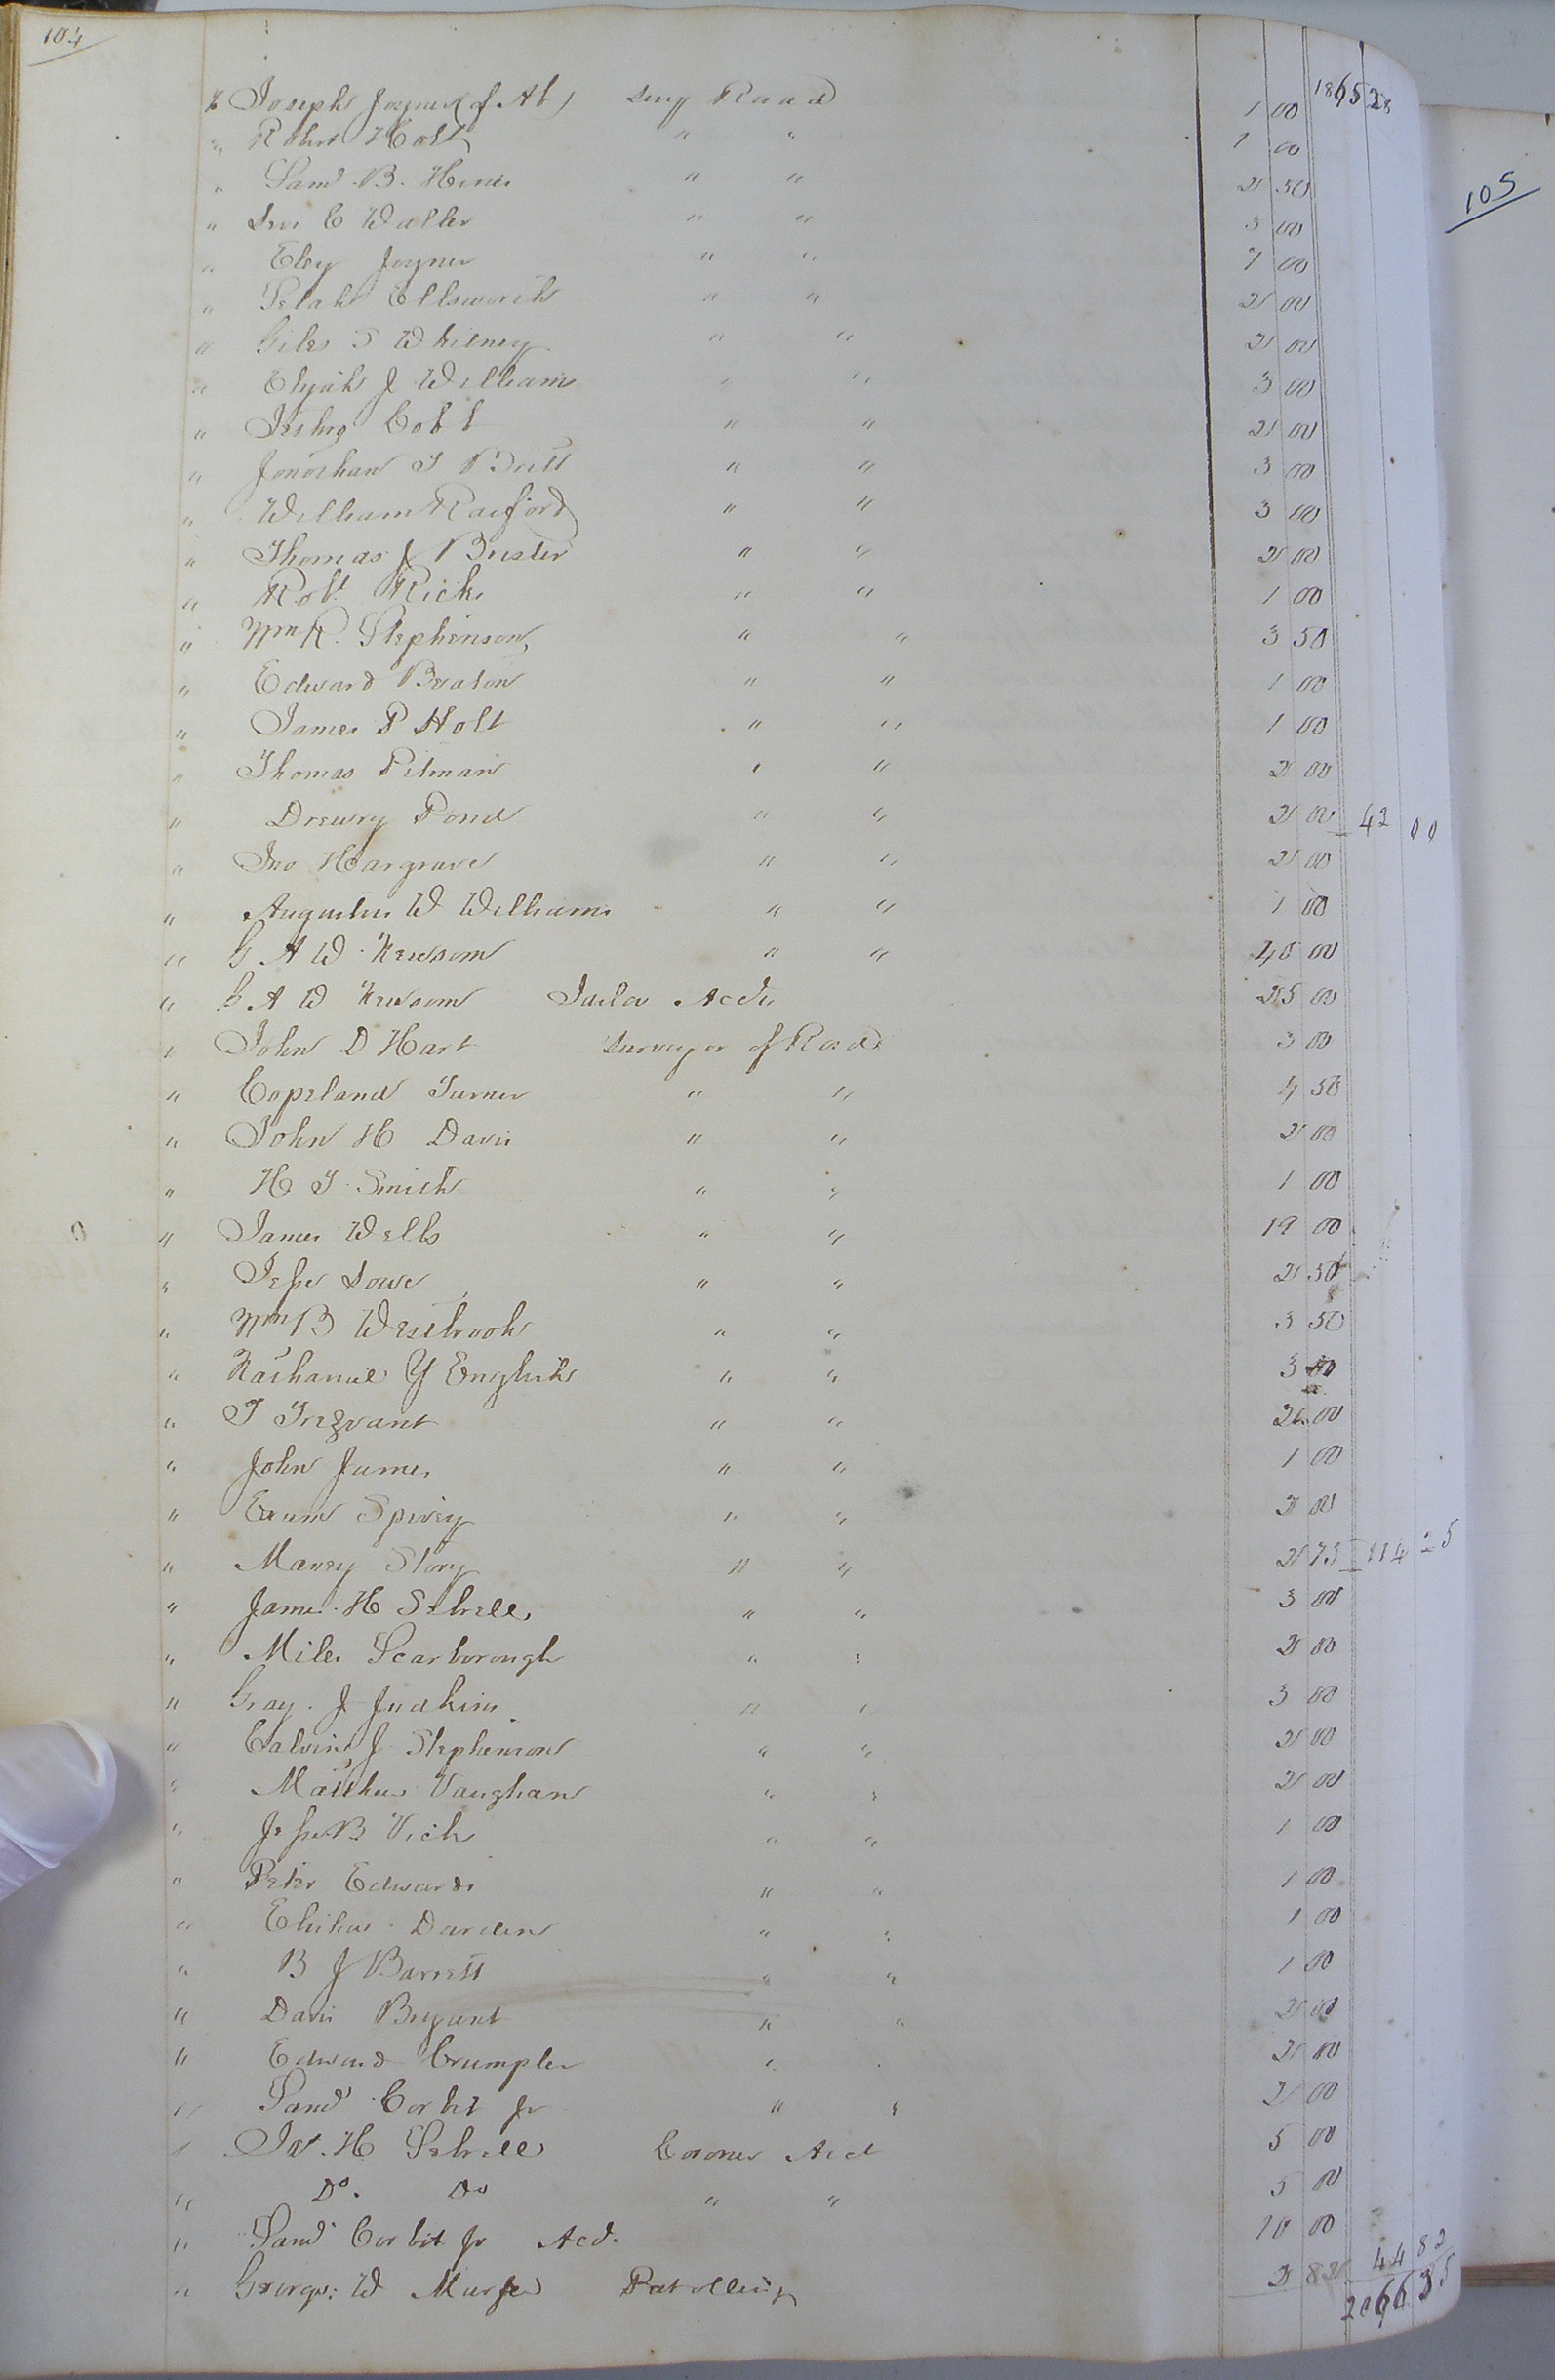 104
1865 28
" Joseph Joyner (of Ab) Survy Road 1 00
" Robert Holt " " 1 00
" Saml B. Hines " " 2 50
" Levi C Waller " " 3 00
" Eley Joyner " " 7 00
" Selah Ellsworth " " 2 00
" Giles S Whitney " " 2 00
" Elijah J Williams " " 3 00
" Cobb " " 2 00
" Jonathan T Britt " " 3 00
" William Raiford " " 3 00
" Thomas J Brister " " 2 00
" Robt Ricks " " 1 00
" Wm R. Stephenson " " 3 50
" Edward Beaton " " 1 00
" James P Holt " " 1 00
" Thomas Pitman " " 2 00
" Drewry Pond " " 2 00 42 00
" Jno Hargrave " " 2 00
" Augustus W Williams " " 1 00
" G A W Newsom " " 40 00
" G A W Newsom Jailor Acct 25 00
" John D Hart Surveyor of Road 3 00
" Copeland Turner " " 4 50
" John H Davis " " 2 00
" H T Smith " " 1 00
" James Wells " " 19 00
" Jesse Lowe " " 2 50
" Wm B Westbrook " " 3 50
" Nathaniel Y English " " 3 00
" T Trezvant " " 2 00
" John James " " 1 00
" Exum Spivey " " 2 00
" Marrey Story " " 2 75 114 25
" James H Sebrell " " 3 00
" Miles Scarborough " " 2 00
" Gray J Judkins " " 3 00
" Calvin J Stephenson " " 2 00
" Matthew Vaughan " " 2 00
" Jesse B Vick " " 1 00
" Peter Edwards " " 1 00
" Elihu Darden " " 1 00
" B J Barrett " " 1 00
" Davis Bryant " " 2 00
" Edward Crumpler " " 2 00
" Saml Corbit Jr " " 2 00
" Jas. H Sebrell Coroners Acct 5 00
" Do. Do " " 5 00
" Saml Corbit Jr Acct. 10 00
" George W Murfee Patrolling 2 82 44 82
2066 35
105